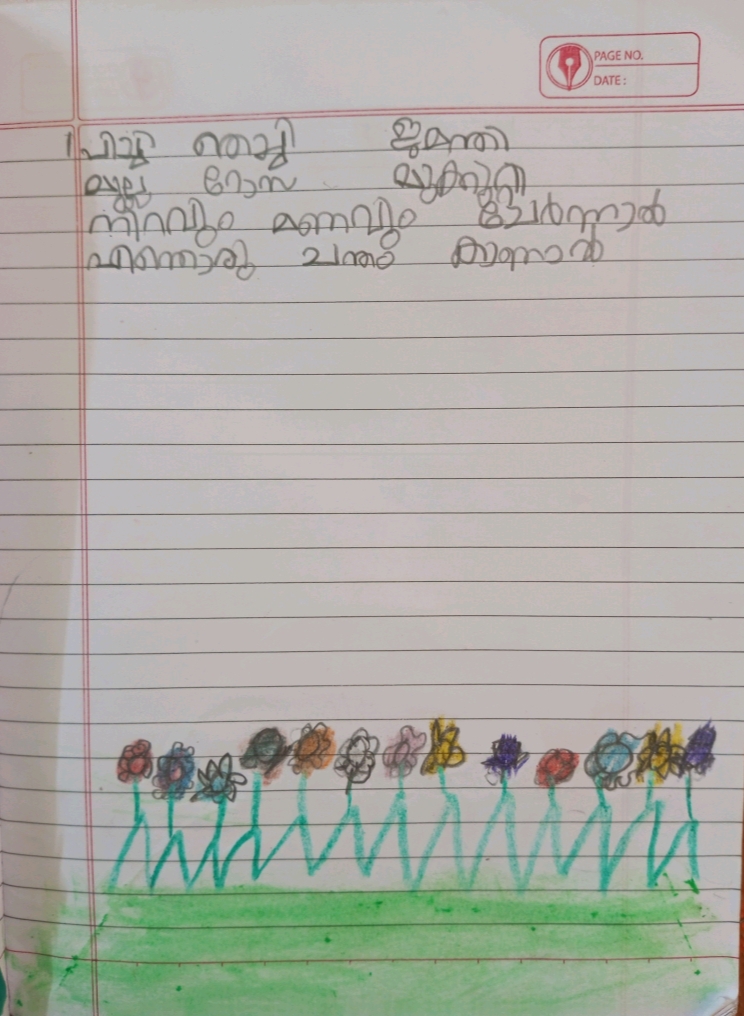 PAGE NO.
DATE:
പിച്ചി തെച്ചി ജമന്തി
മുല്ല റോസ മുക്കുറ്റി
നിറവും മണവും ചേർന്നാൽ
എന്തൊരു ചന്തം കാണാൻ